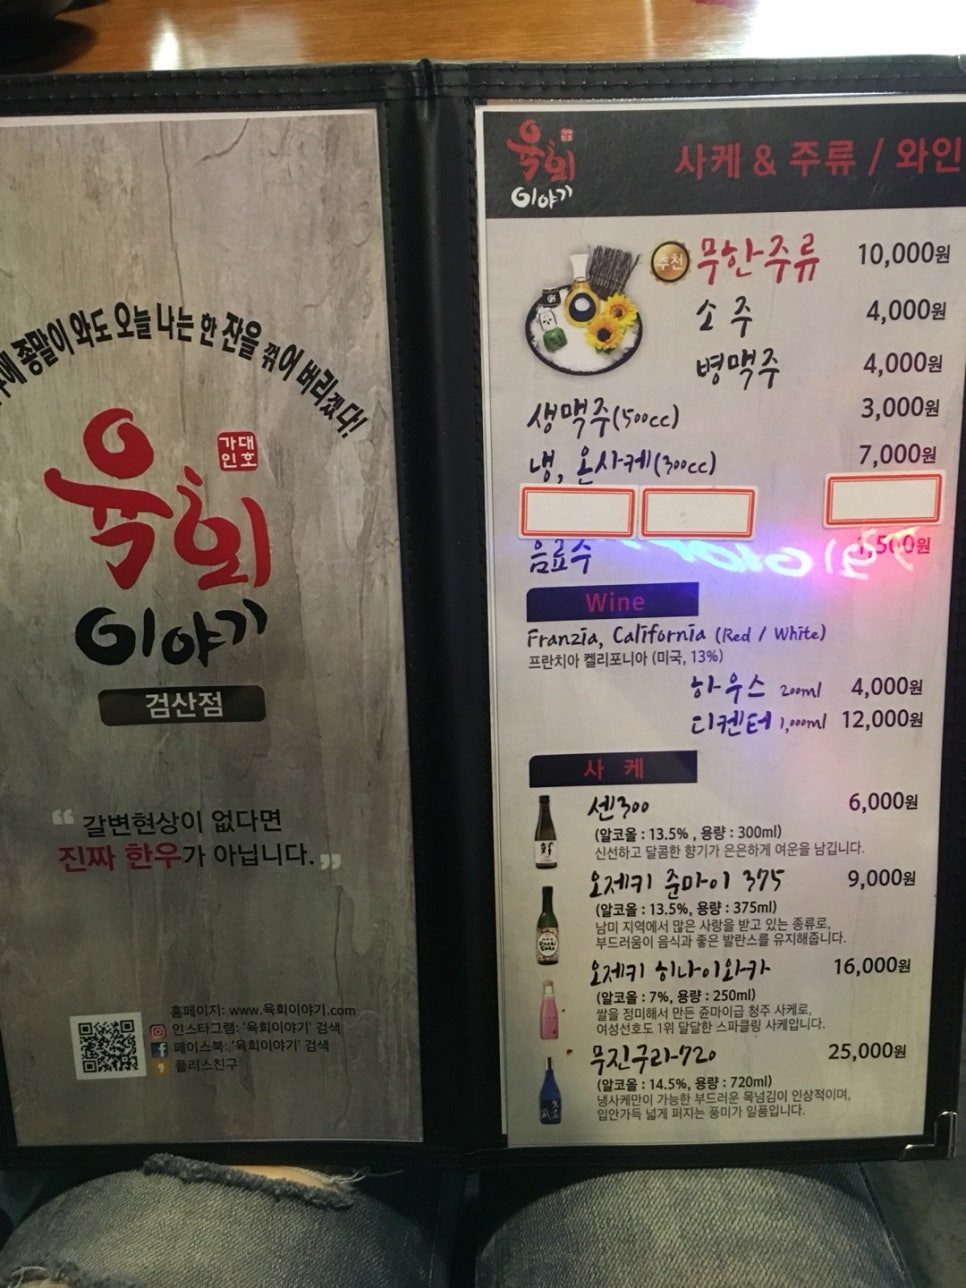 좋말이 와도 오늘 나는 한 잔을 꺾어 버리겠다!
육회
가대
인호
이야기
검산점
“ 갈변현상이 없다면
진짜 한우가 아닙니다. ”
홈페이지: www.육회이야기.com
인스타그램: '육회이야기' 검색
페이스북: '육회이야기' 검색
플러스친구
육회
가대
인호
이야기
사케 & 주류 / 와인
추천 무한주류 10,000원
소주 4,000원
병맥주 4,000원
생맥주(500cc) 3,000원
냉, 온사케(300cc) 7,000원
음료수 1,500원
Wine
Franzia, California (Red / White)
프란치아 켈리포니아 (미국, 13%)
하우스 200ml 4,000원
디켄터 1,000ml 12,000원
사 케
센300 6,000원
(알코올 : 13.5% , 용량 : 300ml)
신선하고 달콤한 향기가 은은하게 여운을 남깁니다.
오제키 준마이 375 9,000원
(알코올 : 13.5%, 용량 : 375ml)
남미 지역에서 많은 사랑을 받고 있는 종류로,
부드러움이 음식과 좋은 발란스를 유지해줍니다.
오제키 히나이와카 16,000원
(알코올 : 7%, 용량 : 250ml)
쌀을 정미해서 만든 쥰마이급 청주 사케로,
여성선호도 1위 달달한 스파클링 사케입니다.
무진구라-720 25,000원
(알코올 : 14.5%, 용량 : 720ml)
냉사케만이 가능한 부드러운 목넘김이 인상적이며,
입안가득 넓게 퍼지는 풍미가 일품입니다.